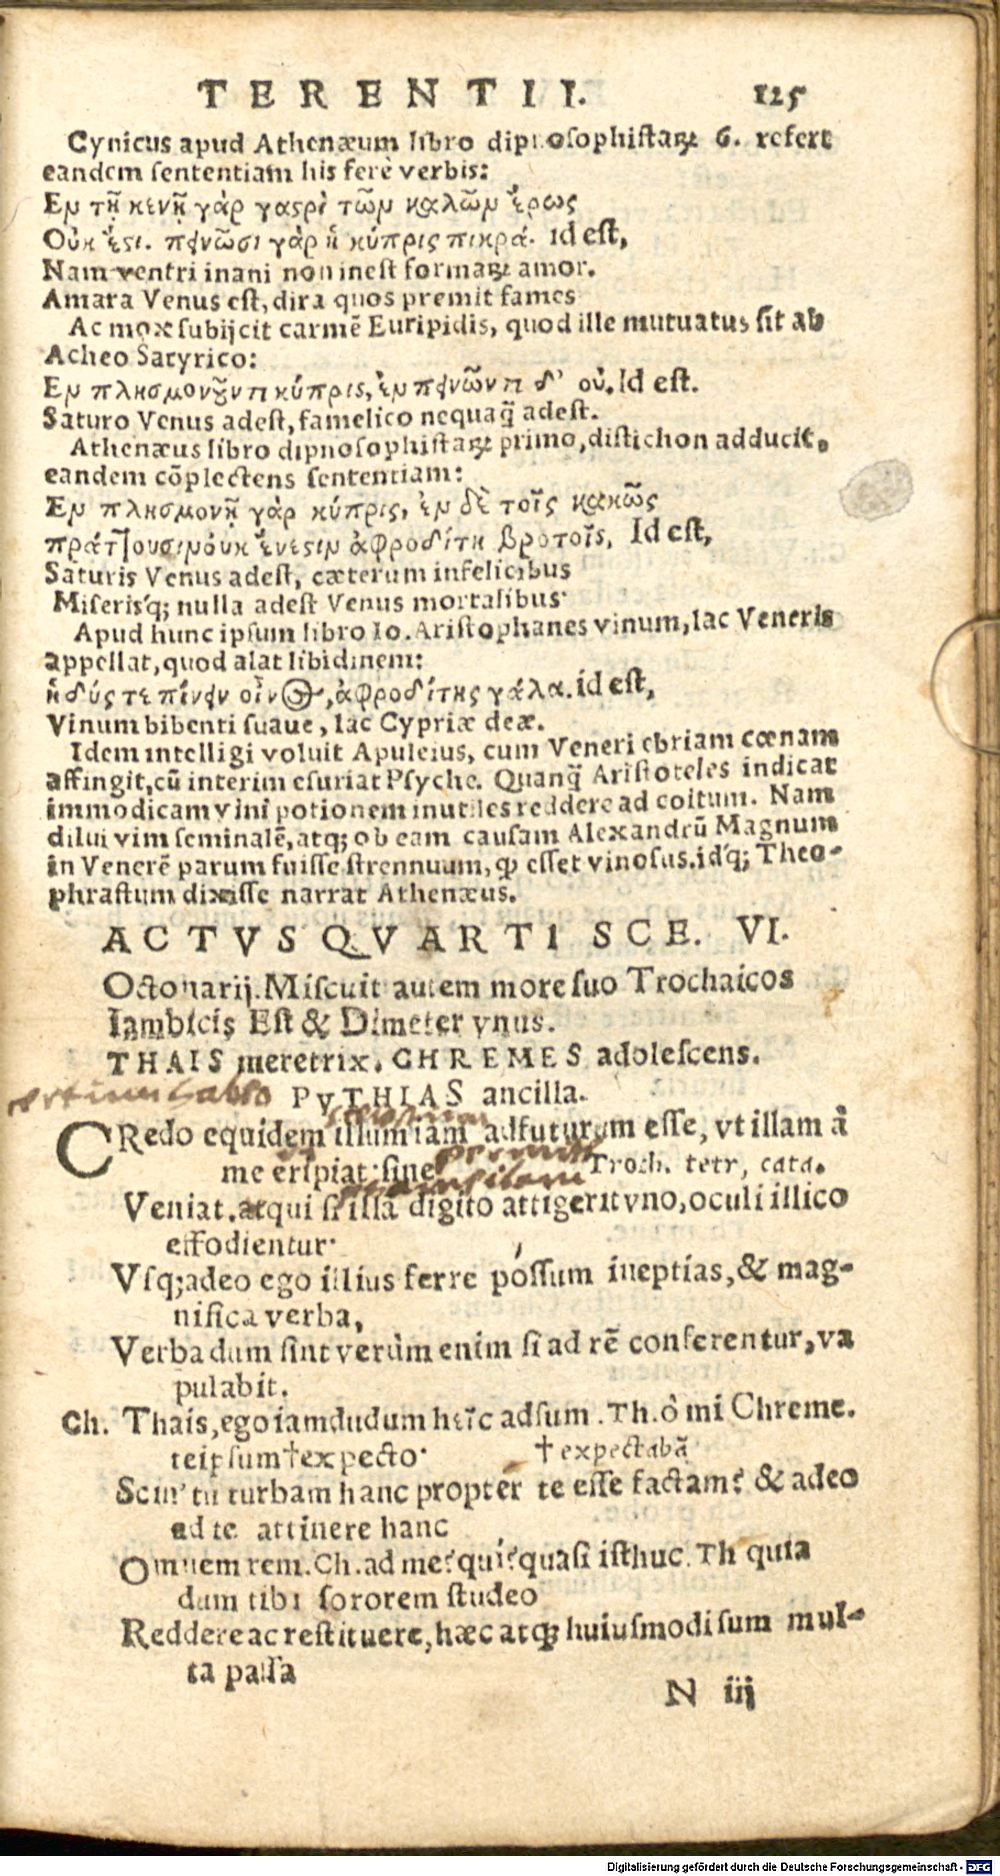 TERENTII. 125
Cynicus apud Athenæum libro dipnosophistaꝝ 6. refert
eandem sententiam his ferè verbis:
Εν τῇ κενῇ γὰρ γαϛρὶ τῶν καλῶν ἔρως
Οὐκ ἔϛι. πεινῶσι γὰρ ἡ κύπρις πικρά. id est,
Nam ventri inani non inest formaꝝ amor.
Amara Venus est, dira quos premit fames
Ac mox subijcit carmē Euripidis, quod ille mutuatus sit ab
Acheo Satyrico:
Εν πλησμονῇ κύπρις, ἐν πεινῶντι δ' οὐ. Id est.
Saturo Venus adest, famelico nequaq̃ adest.
Athenæus libro dipnosophistaꝝ primo, distichon adducit,
eandem cōplectens sententiam:
Εν πλησμονῇ γὰρ κύπρις, ἐν δὲ τοῖς κακῶς
πράττουσιν οὐκ ἔνεϛιν ἀφροδίτη βροτοῖς, Id est,
Saturis Venus adest, cæterum infelicibus
Miserisq́; nulla adest Venus mortalibus
Apud hunc ipsum libro 10. Aristophanes vinum, lac Veneris
appellat, quod alat libidinem:
ἡδύς τε πίνειν οἶνος, ἀφροδίτης γάλα. id est,
Vinum bibenti suaue, lac Cypriæ deæ.
Idem intelligi voluit Apuleius, cum Veneri ebriam cœnam
affingit, cū interim esuriat Psyche. Quanq̃ Aristoteles indicat
immodicam vini potionem inutiles reddere ad coitum. Nam
dilui vim seminalē, atq; ob eam causam Alexandrū Magnum
in Venerē parum fuisse strennuum, ꝙ esset vinosus. idq́; Theo-
phrastum dixisse narrat Athenæus.
ACTVS QVARTI SCE. VI.
Octonarij. Miscuit autem more suo Trochaicos
Iambicis Est & Dimeter vnus.
THAIS meretrix. CHREMES adolescens.
PYTHIAS ancilla.
CRedo equidem illum iam adfuturum esse, vt illam à
me eripiat: sine Troch. tetr, cata.
Veniat. atqui si illa digito attigerit vno, oculi illico
effodientur.
Vsq; adeo ego illius ferre possum ineptias, & mag-
nifica verba,
Verba dum sint verùm enim si ad rē conferentur, va
pulabit.
Ch. Thais, ego iamdudum heîc adsum. Th. ô mi Chreme.
teipsum †expecto. † expectabā
Scin' tu turbam hanc propter te esse factam? & adeo
ad te attinere hanc
Omnem rem. Ch. ad me? qui? quasi isthuc. Th quia
dum tibi sororem studeo
Reddere ac restituere, hæc atqꝫ huiusmodi sum mul-
ta passa
N iij
Digitalisierung gefördert durch die Deutsche Forschungsgemeinschaft - DFG